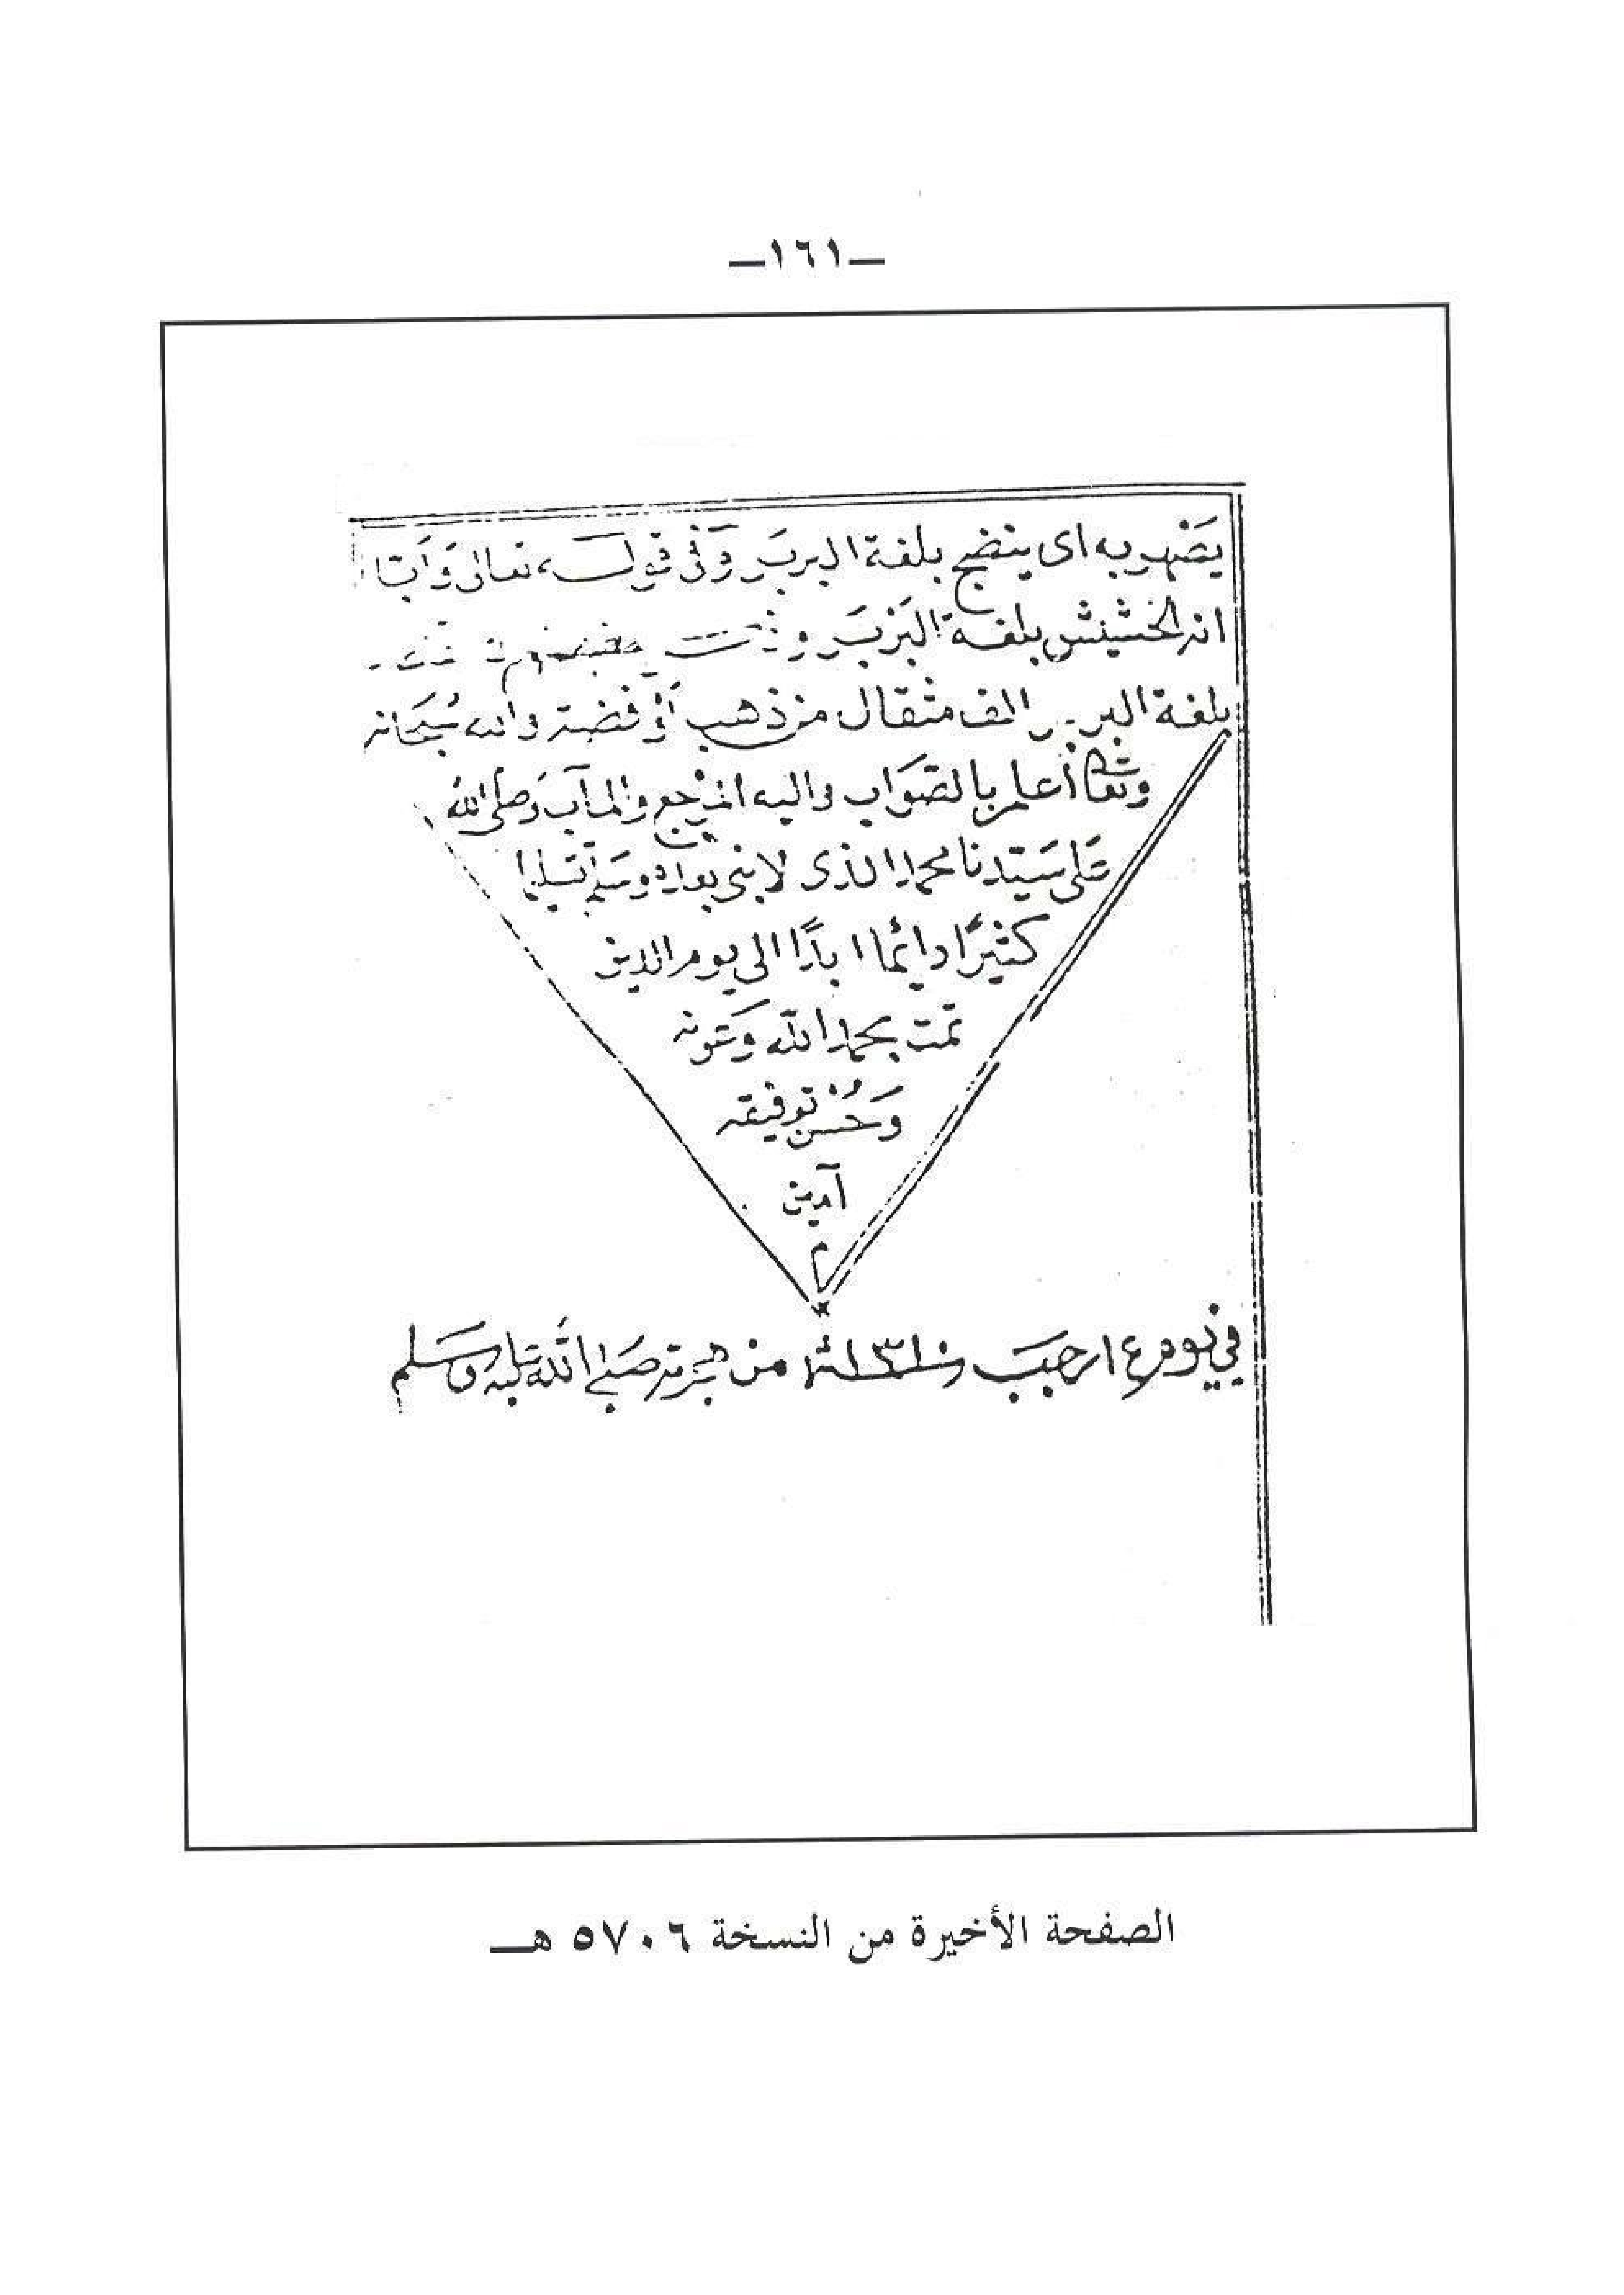 —١٦١—
يصهر به اى ينضج بلغة البربر وفى قوله تعالى وأبّا
انه الحشيش بلغة البربر
بلغة البربر الف مثقال من ذهب أو فضة والله سبحانه
وتعالى أعلم بالصواب واليه المرجع والمآب وصلى الله
على سيدنا محمد الذى لا نبى بعده وسلم تسليما
كثيرًا دائما ابدًا الى يوم الدين
تمت بحمد الله وعونه
وحسن توفيقه
آمين
م
في يوم ١٤ رجب من هجرته صلى الله عليه وسلم
الصفحة الأخيرة من النسخة ٥٧٠٦ هـ